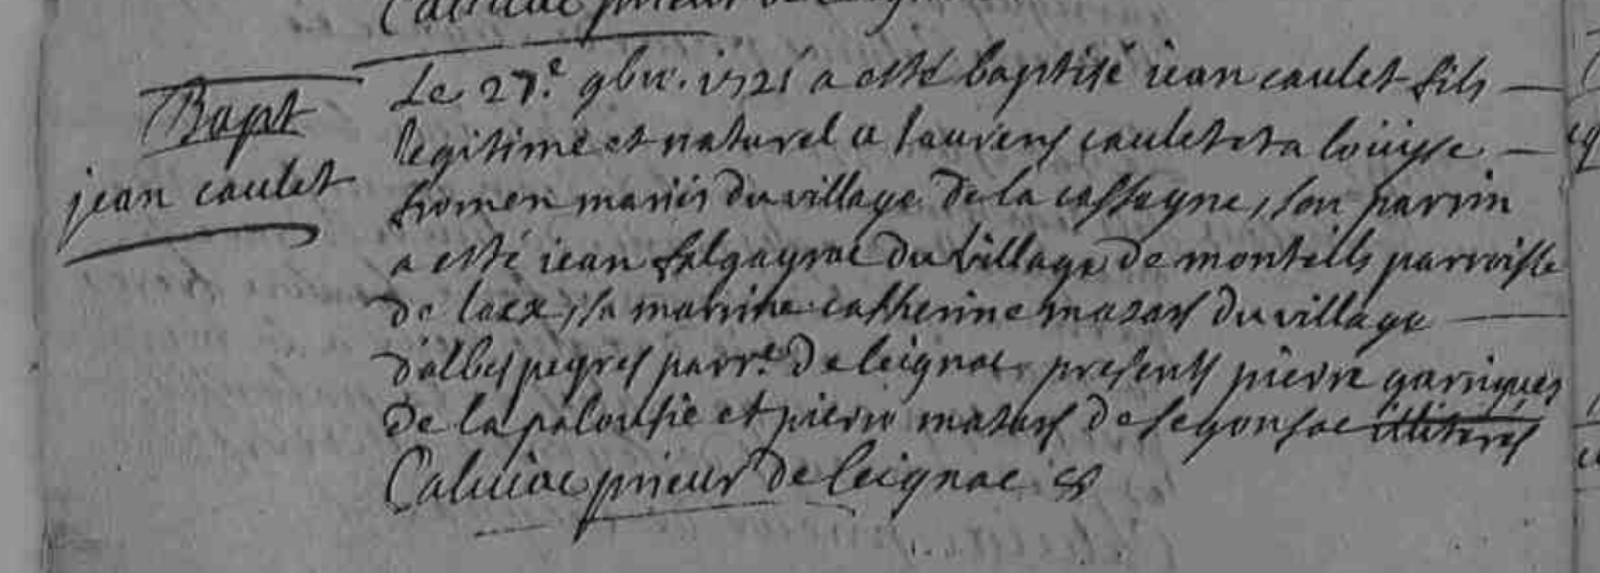 Calviac prieur de leignac
Bapt
jean caulet
Le 27.e 9bre. 1721 a esté baptisé iean caulet fils
legitime et naturel a laurens caulet et a loüisse
fromen mariés du village de la cassagne, son parrin
a esté iean falgayrac du village de montells parroisse
de laex, sa marrine catherine mazars du village
d'albespeyres parr.e de leignac presents pierre garrigues
de la pelousie et pierre mazars de segonsac illiterés
Calviac prieur de leignac